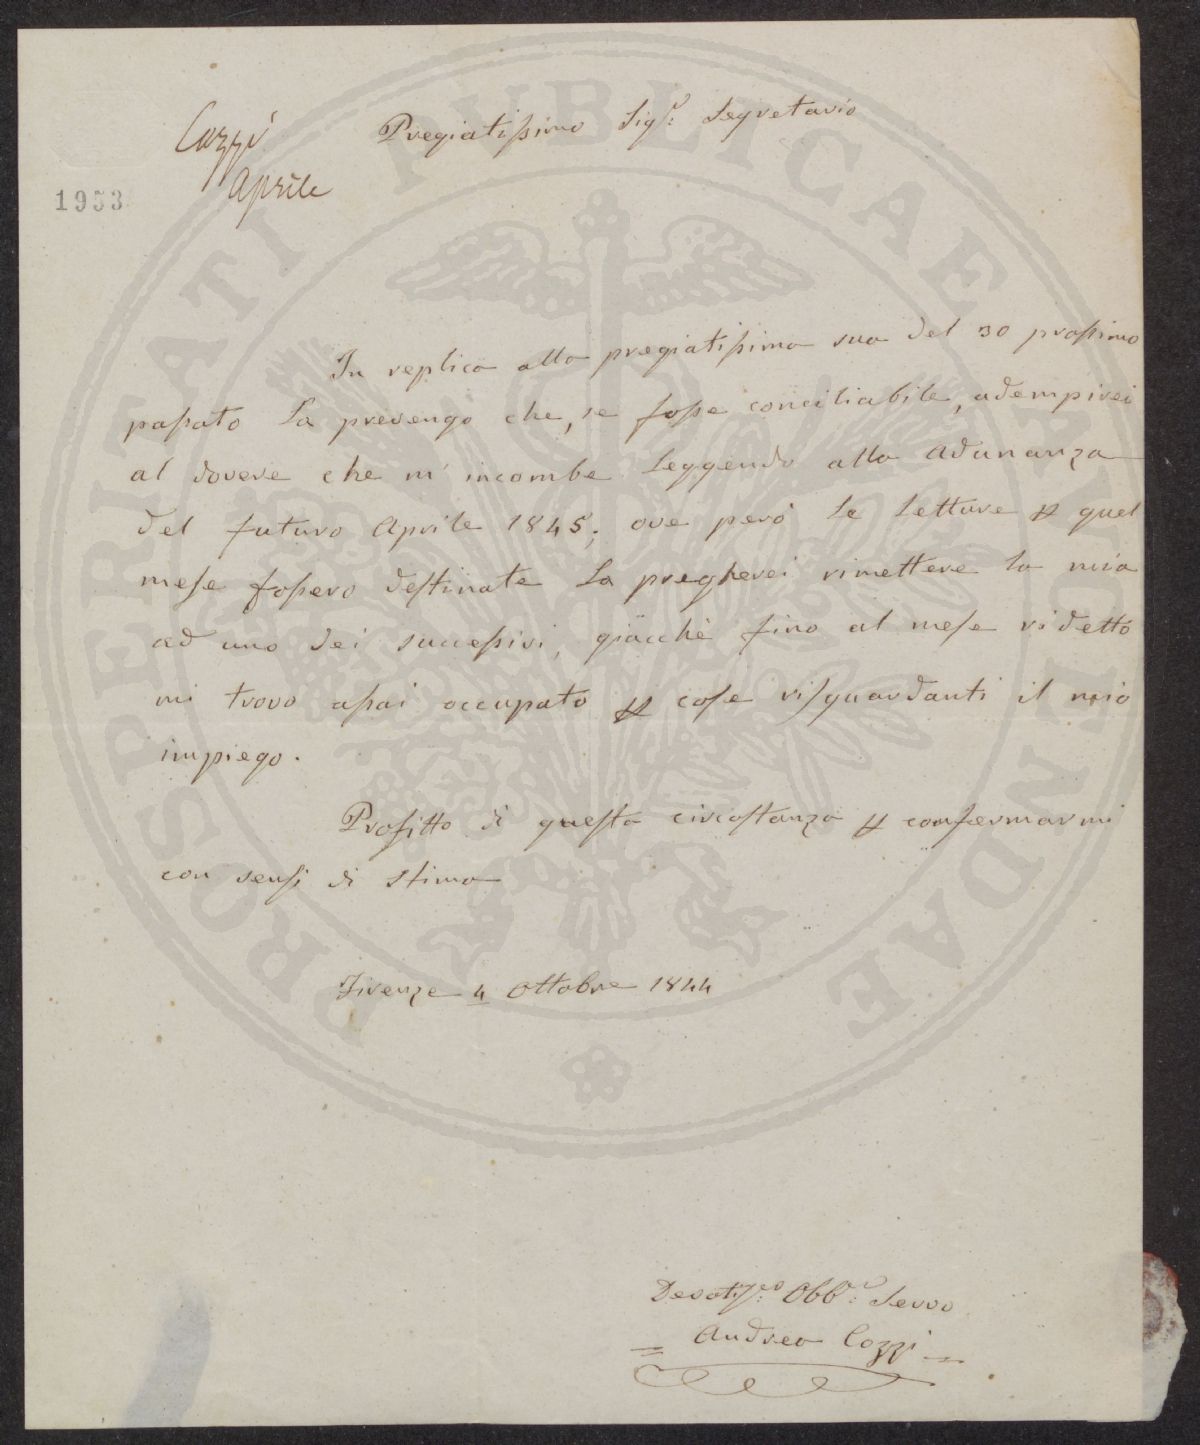 Cozzi
Aprile
1953
Pregiatissimo Sigr: Segretario
In replica alla pregiatissima sua del 30 prossimo
passato La prevengo che, se fosse conciliabile, adempirei
al dovere che m' incombe leggendo alla Adunanza
del futuro Aprile 1845; ove però le letture p quel
mese fossero destinate La pregherei rimettere la mia
ad uno dei successivi, giacchè fino al mese ridetto
mi trovo assai occupato p cose risguardanti il mio
impiego.
Profitto di questa circostanza p confermarmi
con sensi di stima
Firenze 4 Ottobre 1844
Devotiss:o Obb:o Servo
Andrea Cozzi
PROSPERITATI PUBLICAE AUGENDAE